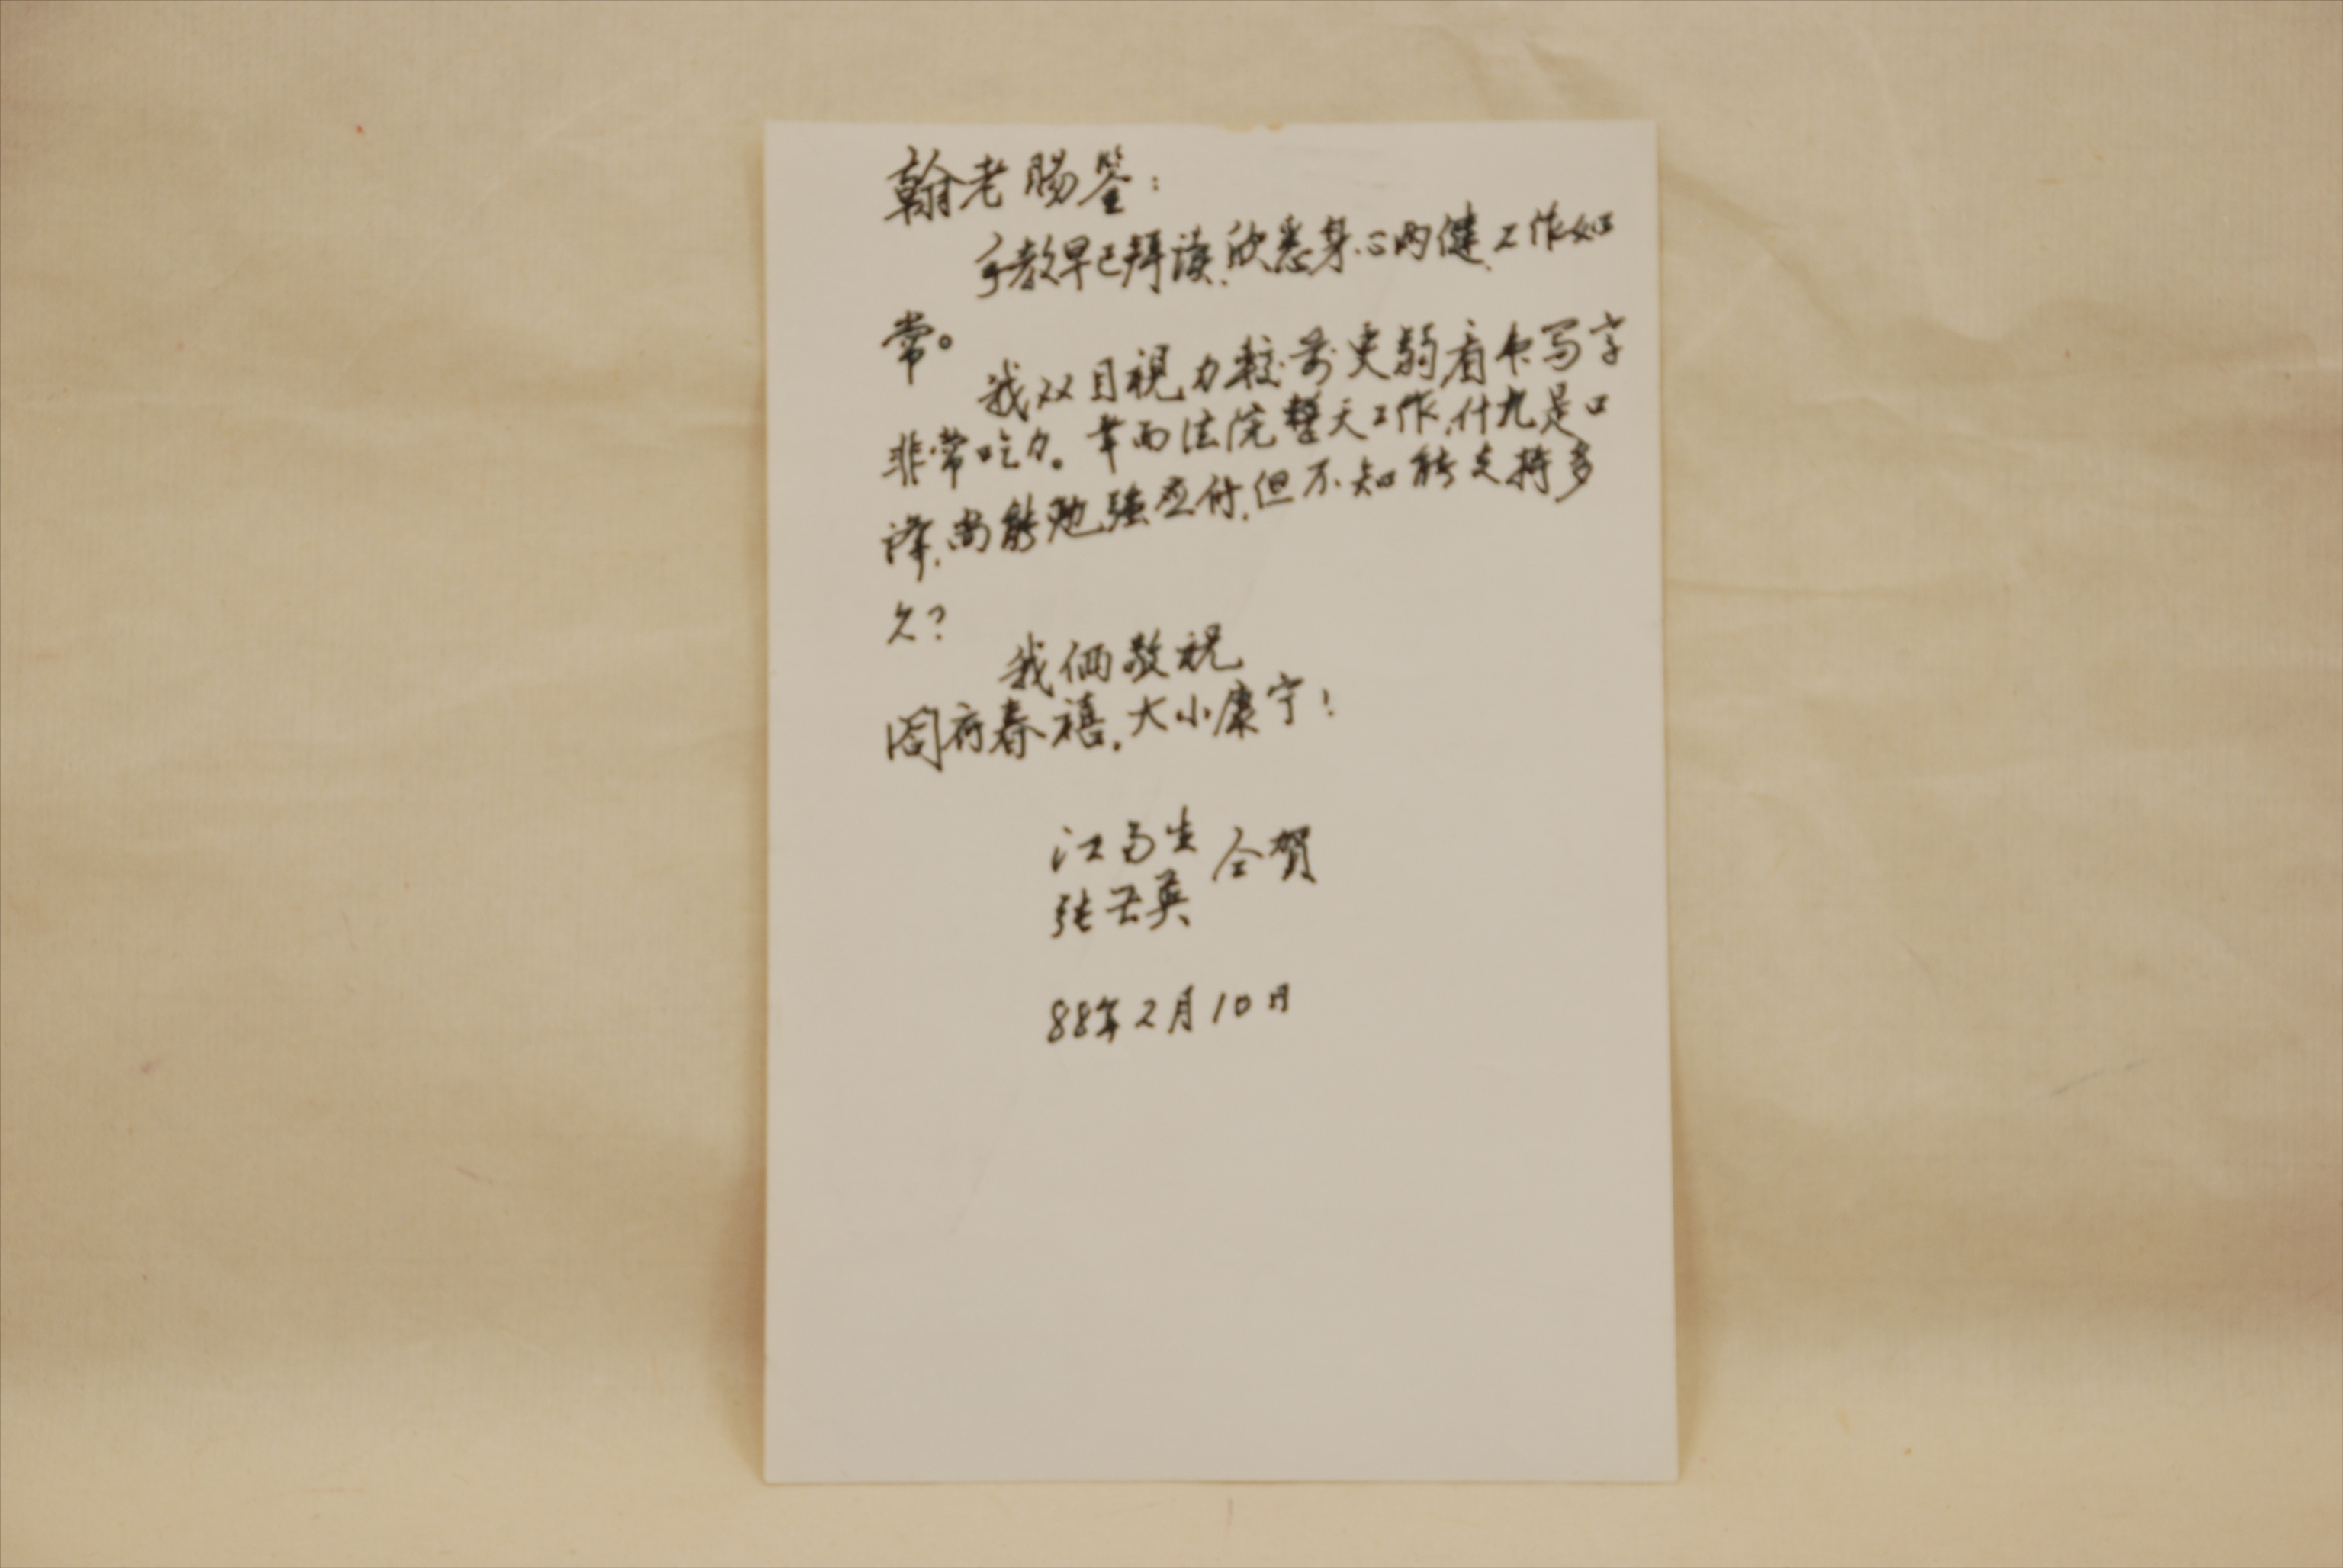 翰老賜鉴：
手教早已拜读,欣悉身心两健,工作如
常。
我双目視力較前更弱看书写字
非常吃力。幸而法院整天工作,什九是口
译,尚能勉强应付,但不知能支持多
久?
我俩敬祝
阁府春禧,大小康宁!
江 生 仝賀
张 英
88年2月10日